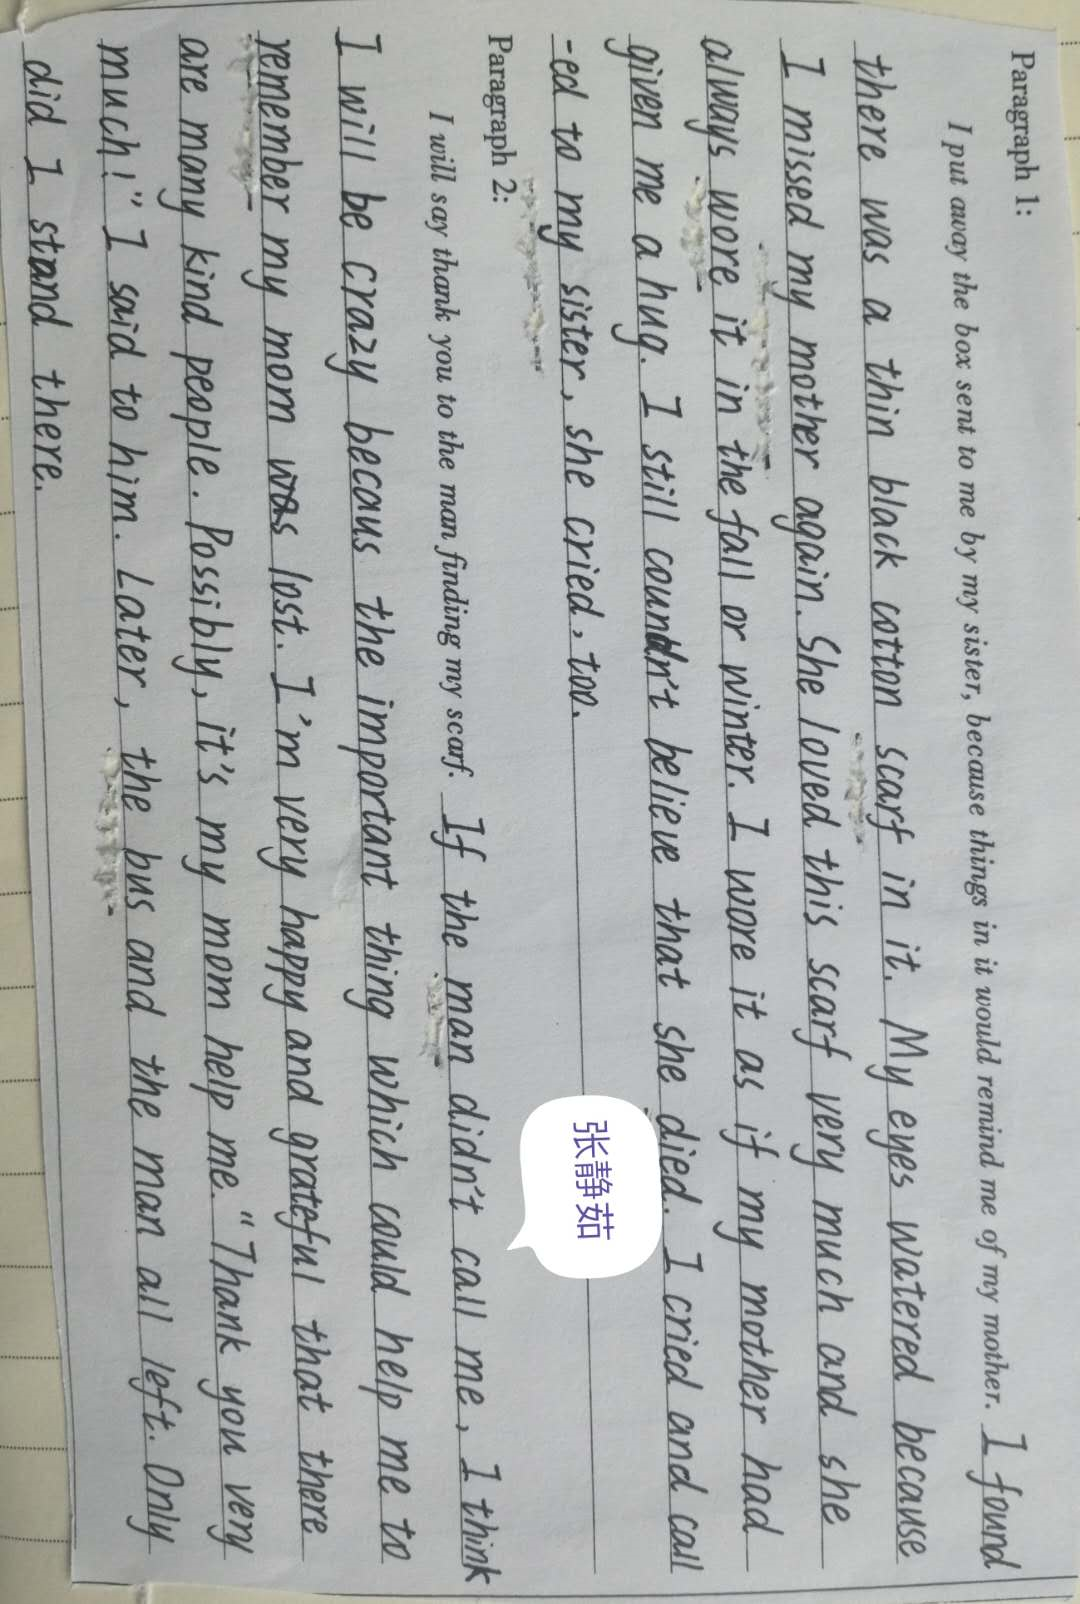 Paragraph 1:
I put away the box sent to me by my sister, because things in it would remind me of my mother. I found
there was a thin black cotton scarf in it. My eyes watered because
I missed my mother again. She loved this scarf very much and she
always wore it in the fall or winter. I wore it as if my mother had
given me a hug. I still coundn't believe that she died. I cried and call
-ed to my sister, she cried, too.
张静茹
Paragraph 2:
I will say thank you to the man finding my scarf. If the man didn't call me, I think
I will be crazy becaus the important thing which could help me to
remember my mom was lost. I'm very happy and grateful that there
are many kind people. Possibly, it's my mom help me. "Thank you very
much!" I said to him. Later, the bus and the man all left. Only
did I stand there.